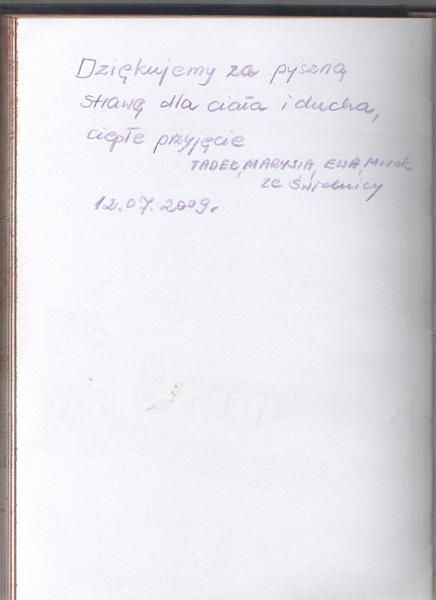 Dziękujemy za pyszną
strawę dla ciała i ducha,
ciepłe przyjęcie
TADEK, MARYSIA, EWA, Mirek
ze Świdnicy
12.07.2009.